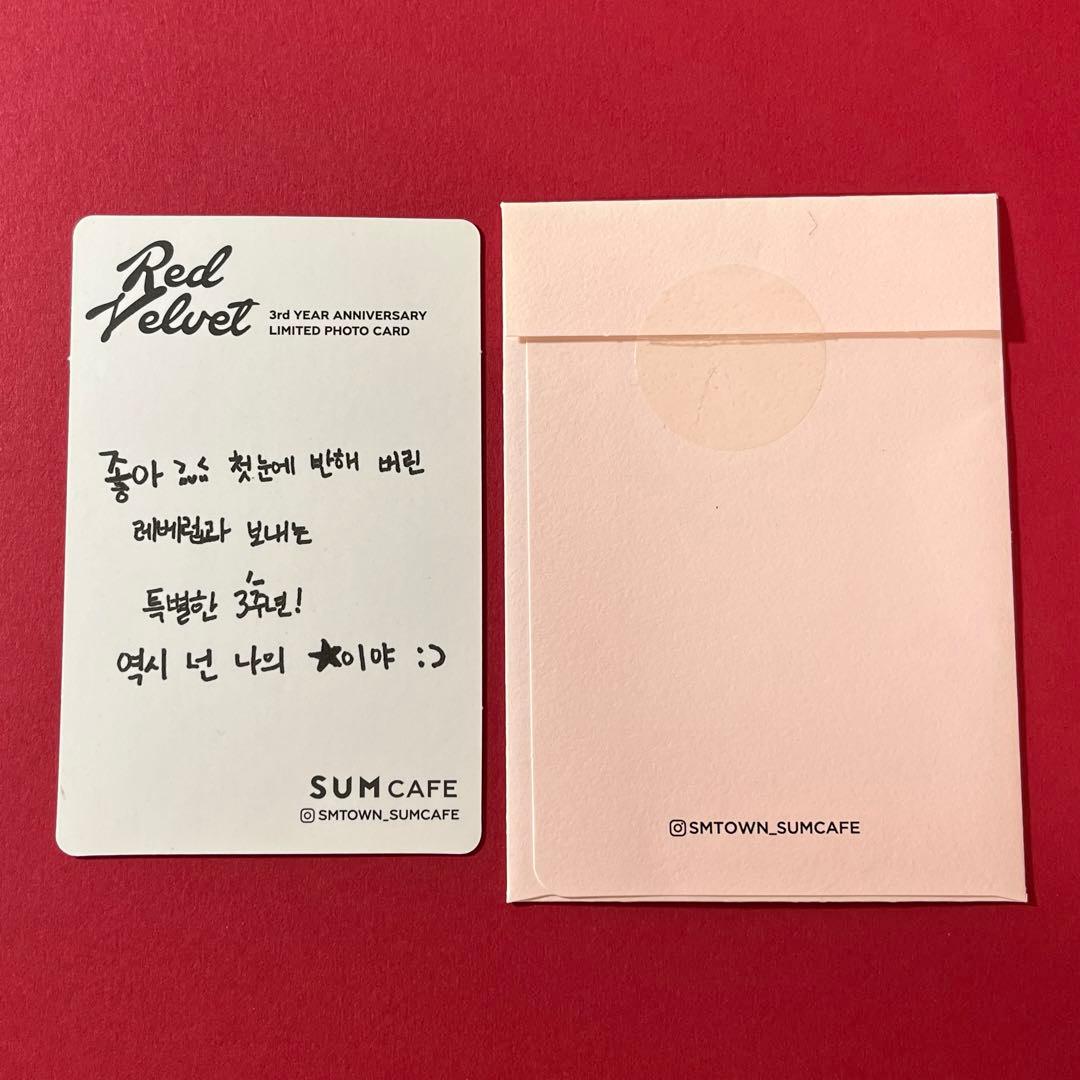 Red
Velvet
3rd YEAR ANNIVERSARY
LIMITED PHOTO CARD
좋아 첫눈에 반해 버린
레베럽과 보내는
특별한 3주년!
역시 넌 나의 ★이야 :)
SUM CAFE
SMTOWN_SUMCAFE
SMTOWN_SUMCAFE